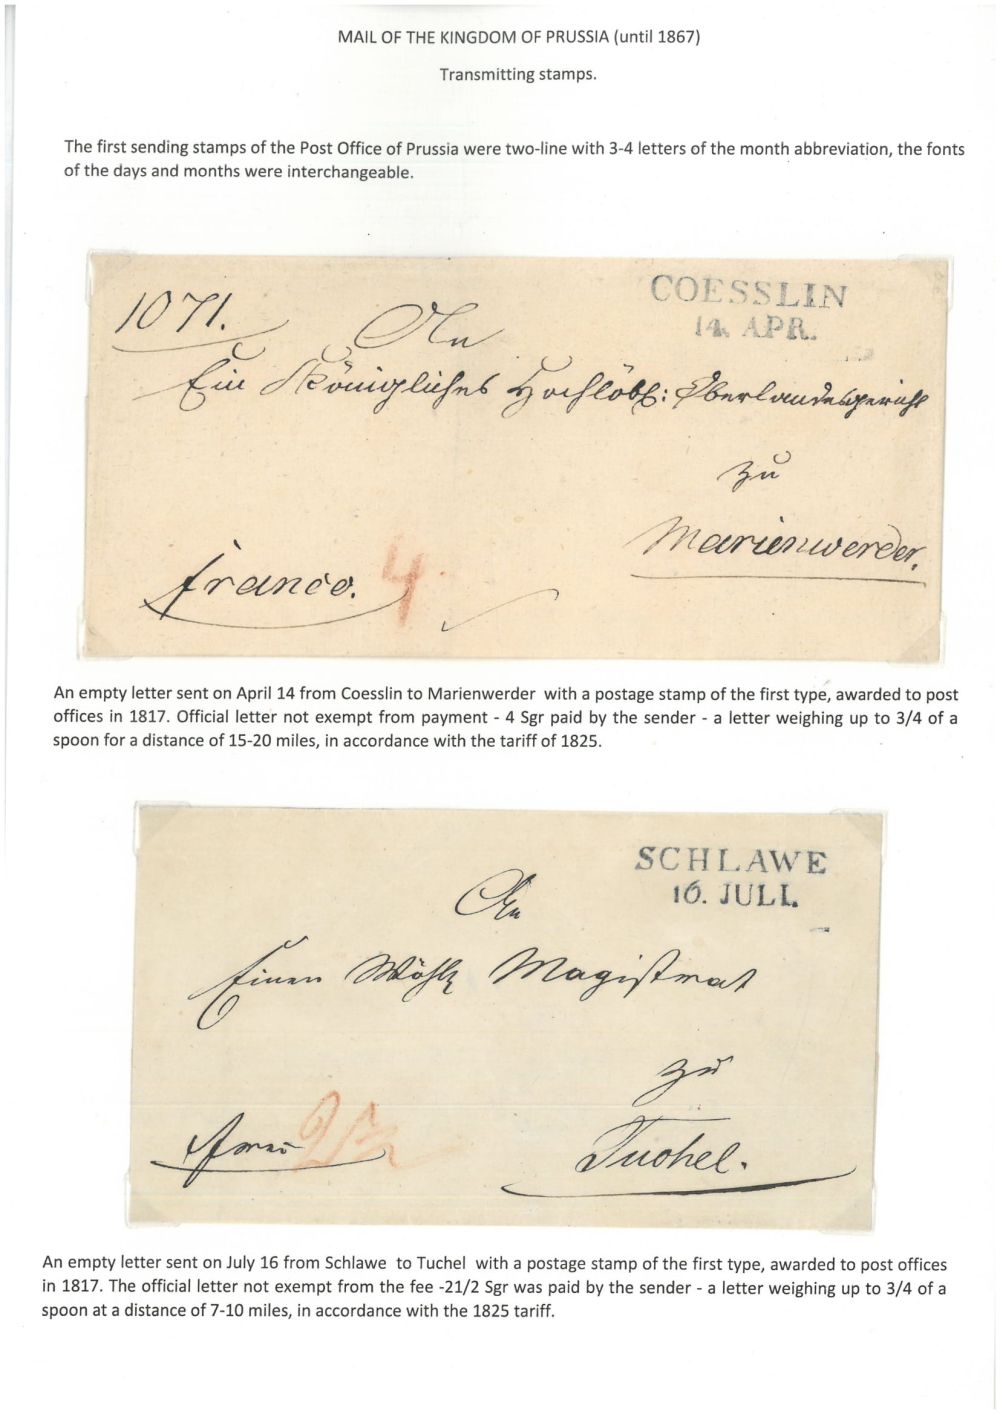 MAIL OF THE KINGDOM OF PRUSSIA (until 1867)
Transmitting stamps.
The first sending stamps of the Post Office of Prussia were two-line with 3-4 letters of the month abbreviation, the fonts
of the days and months were interchangeable.
COESSLIN
14. APR.
1071.
An
Ein Königliches Hochlöbl: Oberlandesgericht
zu
Marienwerder.
franco. 4
An empty letter sent on April 14 from Coesslin to Marienwerder with a postage stamp of the first type, awarded to post
offices in 1817. Official letter not exempt from payment - 4 Sgr paid by the sender - a letter weighing up to 3/4 of a
spoon for a distance of 15-20 miles, in accordance with the tariff of 1825.
SCHLAWE
16. JULI.
An
Einen Wohll Magistrat
zu
Tuchel.
2 1/2
An empty letter sent on July 16 from Schlawe to Tuchel with a postage stamp of the first type, awarded to post offices
in 1817. The official letter not exempt from the fee -21/2 Sgr was paid by the sender - a letter weighing up to 3/4 of a
spoon at a distance of 7-10 miles, in accordance with the 1825 tariff.